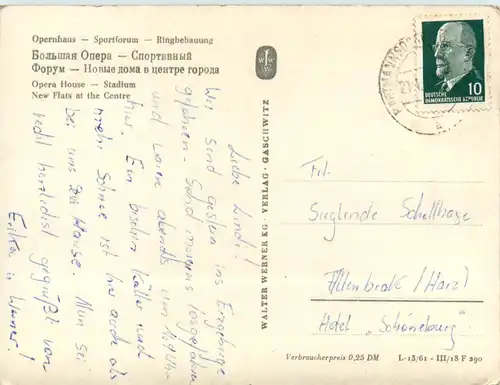 Opernhaus — Sportforum — Ringbebauung
Большая Опера — Спортивный
Форум — Новые дома в центре города
Opera House — Stadium
New Flats at the Centre
Liebe Lindi!
Wir sind gestern ins Erzgebirge
gefahren - Sind morgens losgefahren
und waren abends um
hier. Ein bischen kälter und
mehr Schnee ist hier auch als
bei uns zu Hause. Nun sei
recht herzlichst gegrüßt von
Erika u. Werner!
WALTER WERNER KG · VERLAG · GASCHWITZ
DEUTSCHE
DEMOKRATISCHE REPUBLIK
10
Frl.
Sieglinde Schellhase
Altenbrak / Harz
Hotel „Schöneburg"
Verbraucherpreis 0,25 DM
L-13/61 - III/18 F 290